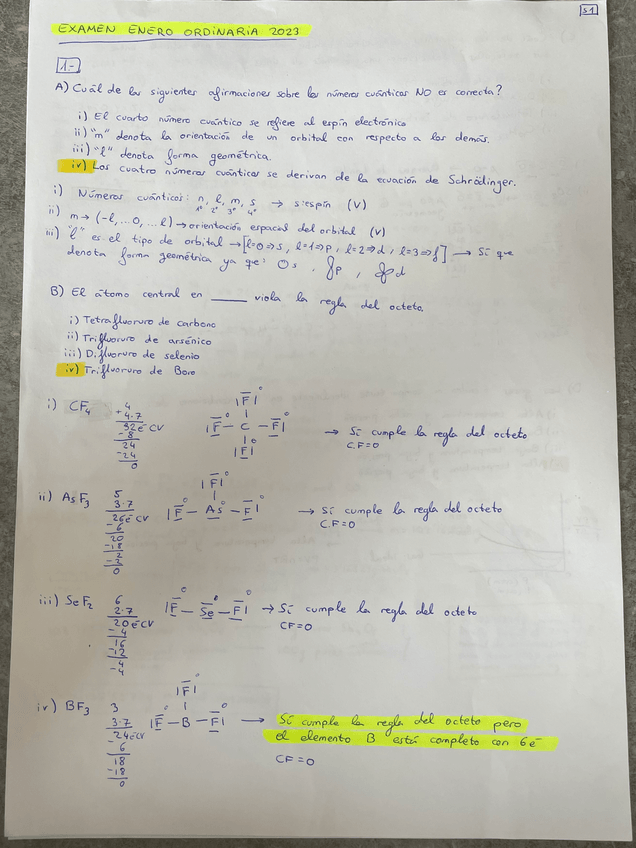 S1
EXAMEN ENERO ORDINARIA 2023
1.-
A) Cuál de las siguientes afirmaciones sobre los números cuánticos NO es correcta?
i) El cuarto número cuántico se refiere al espín electrónico
ii) "m" denota la orientación de un orbital con respecto a los demás.
iii) "l" denota forma geométrica.
iv) Los cuatro números cuánticos se derivan de la ecuación de Schrödinger.
i) Números cuánticos: n, l, m, s → s:espín (V)
1º 2º 3º 4º
ii) m → (-l, ...0, ...l) → orientación espacial del orbital (V)
iii) "l" es el tipo de orbital → [l=0⇒s, l=1⇒p, l=2⇒d, l=3⇒f] → Sí que
denota forma geométrica ya que: s, p, d
B) El átomo central en _____ viola la regla del octeto.
i) Tetrafluoruro de carbono
ii) Trifluoruro de arsénico
iii) Difluoruro de selenio
iv) Trifluoruro de Boro
i) CF4
4
+ 4.7
32 e- CV
-8
24
-24
0
|F|
|F - C - F|
|F|
→ Sí cumple la regla del octeto
C.F=0
ii) AsF3
5
3.7
26 e- CV
-6
20
-18
2
-2
0
|F|
|F - As - F|
→ Sí cumple la regla del octeto
C.F=0
iii) SeF2
6
2.7
20 e- CV
-4
16
-12
4
-4
|F - Se - F|
→ Sí cumple la regla del octeto
CF=0
iv) BF3
3
3.7
24 e- CV
-6
18
-18
0
|F|
|F - B - F|
→ Sí cumple la regla del octeto pero
el elemento B está completo con 6 e-
CF=0